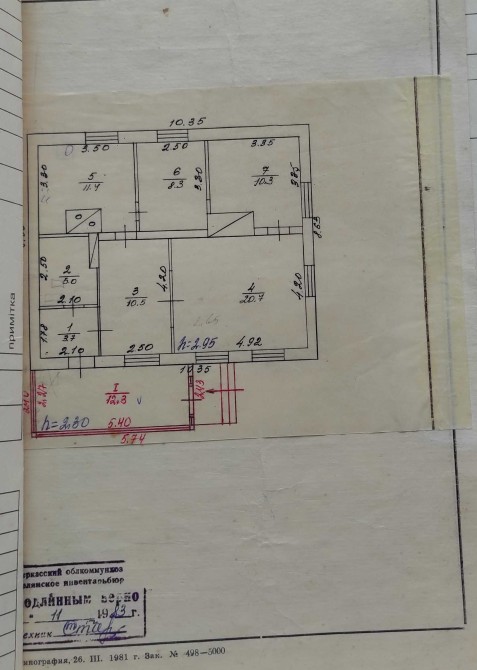 10.35
3.50
2.50
3.35
3.30
5
11.4
6
8.3
3.30
7
10.3
3.35
8.63
2.50
2
5.0
2.10
3
10.5
4.20
4
20.7
4.20
1
3.7
1.78
2.10
2.50
h=2.95
4.92
10.35
I
12.3
2.27
2.43
h=2.30
5.40
5.74
примітка
ркасский облкоммунхоз
инвентарбюр
одлинным верно
11 1983 г.
ехник
нография, 26. III. 1981 г. Зак. № 428—5000